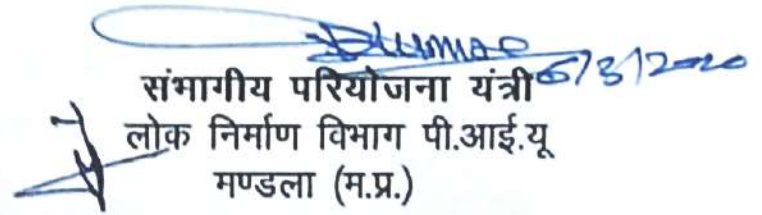 6/3/2020
संभागीय परियोजना यंत्री
लोक निर्माण विभाग पी.आई.यू
मण्डला (म.प्र.)